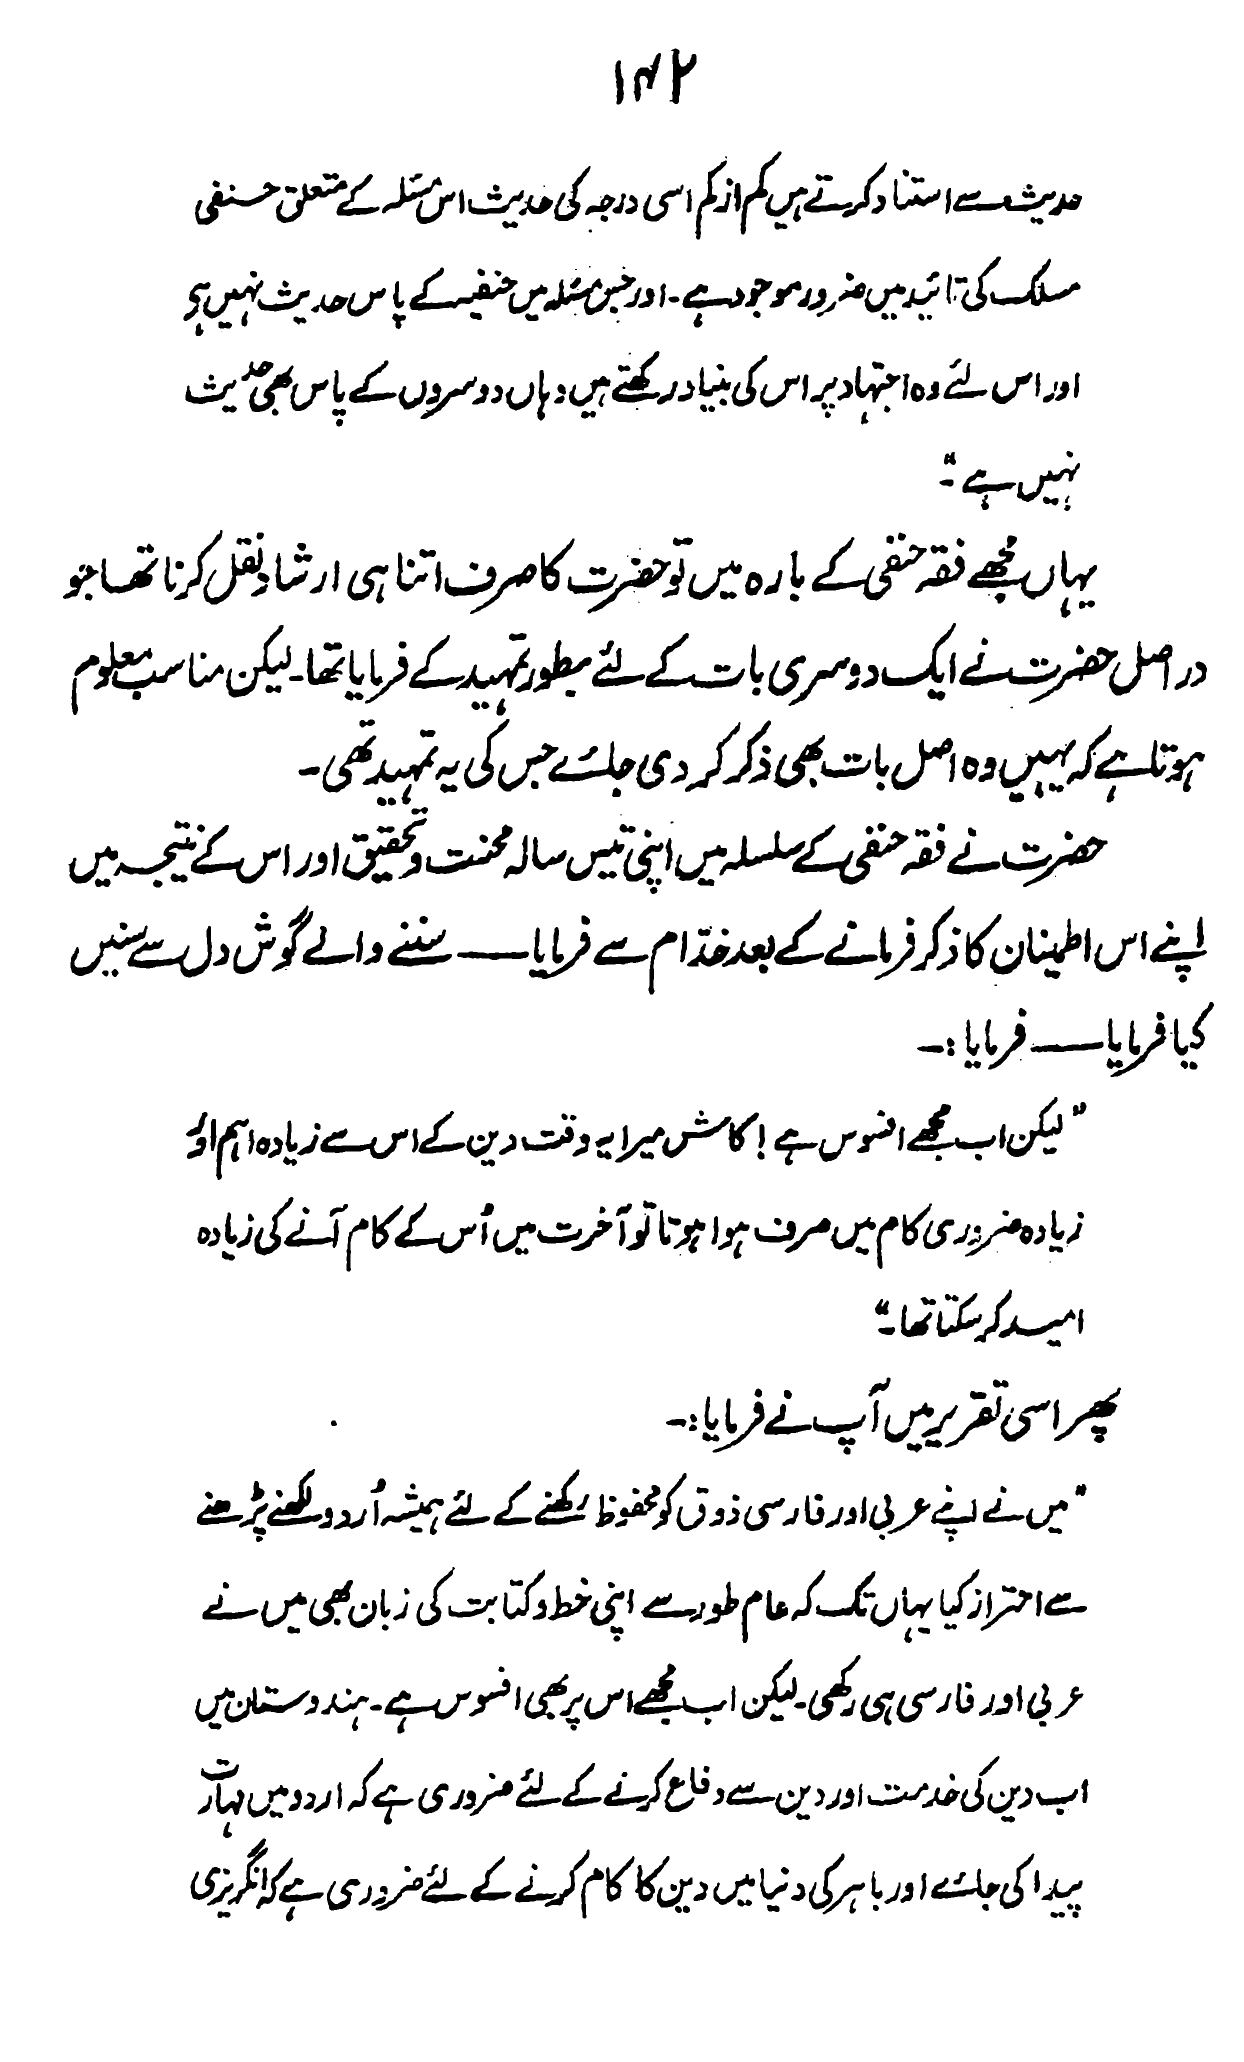 ۱۴۲
حدیث سے استناد کرتے ہیں کم از کم اسی درجہ کی حدیث اس مسئلہ کے متعلق حنفی
مسلک کی تائید میں ضرور موجود ہے۔ اور جس مسئلہ میں حنفیہ کے پاس حدیث نہیں ہو
اور اس لئے وہ اجتہاد پر اس کی بنیاد رکھتے ہیں وہاں دوسروں کے پاس بھی حدیث
نہیں ہے"۔
یہاں مجھے فقہ حنفی کے بارہ میں تو حضرت کا صرف اتنا ہی ارشاد نقل کرنا تھا جو
در اصل حضرت نے ایک دوسری بات کے لئے بطور تمہید کے فرمایا تھا۔ لیکن مناسب معلوم
ہوتا ہے کہ یہیں وہ اصل بات بھی ذکر کر دی جائے جس کی یہ تمہید تھی۔
حضرت نے فقہ حنفی کے سلسلہ میں اپنی تیس سالہ محنت و تحقیق اور اس کے نتیجہ میں
اپنے اس اطمینان کا ذکر فرمانے کے بعد خدّام سے فرمایا —— سننے والے گوش دل سے سنیں
کیا فرمایا —— فرمایا :۔
"لیکن اب مجھے افسوس ہے ! کاش میرا یہ وقت دین کے اس سے زیادہ اہم اور
زیادہ ضروری کام میں صرف ہوا ہوتا تو آخرت میں اُس کے کام آنے کی زیادہ
امید کر سکتا تھا۔"
پھر اسی تقریر میں آپ نے فرمایا :۔
"میں نے اپنے عربی اور فارسی ذوق کو محفوظ رکھنے کے لئے ہمیشہ اُردو لکھنے پڑھنے
سے احتراز کیا یہاں تک کہ عام طور سے اپنی خط و کتابت کی زبان بھی میں نے
عربی اور فارسی ہی رکھی۔ لیکن اب مجھے اس پر بھی افسوس ہے۔ ہندوستان میں
اب دین کی خدمت اور دین سے دفاع کرنے کے لئے ضروری ہے کہ اردو میں مہارت
پیدا کی جائے اور باہر کی دنیا میں دین کا کام کرنے کے لئے ضروری ہے کہ انگریزی